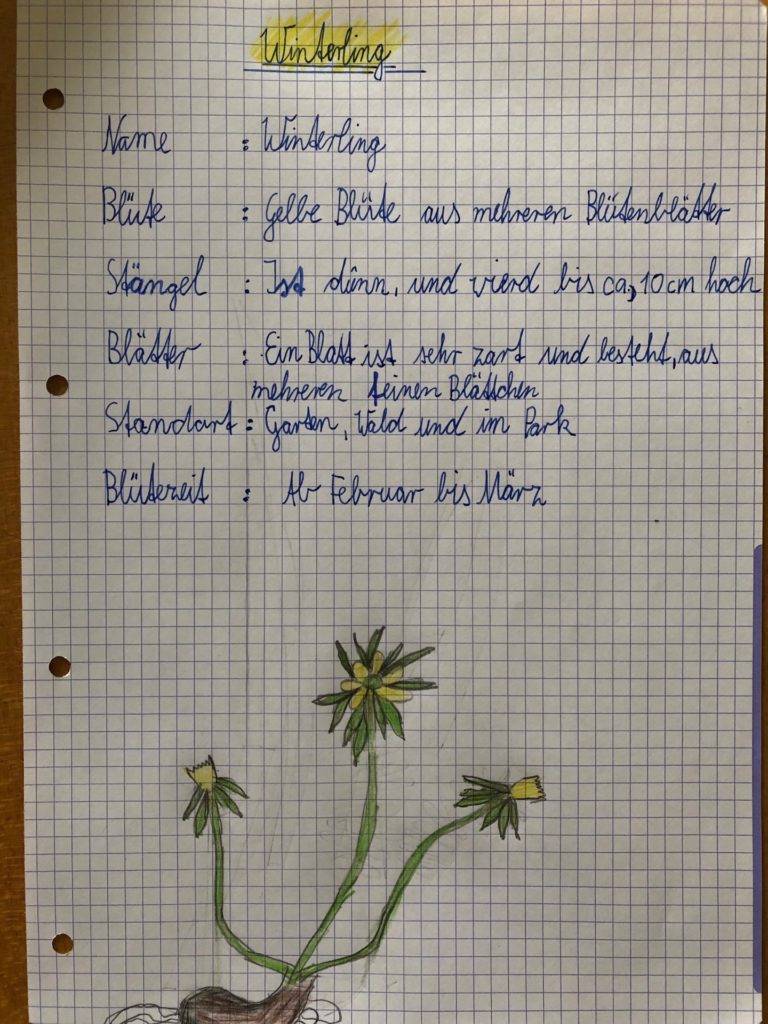 Winterling
Name : Winterling
Blüte : Gelbe Blüte aus mehreren Blütenblätter
Stängel : Ist dünn, und vierd bis ca, 10 cm hoch
Blätter : Ein Blatt ist sehr zart und besteht, aus
mehreren feinen Blättchen
Standart : Garten, Wald und im Park
Blütezeit : Ab Februar bis März